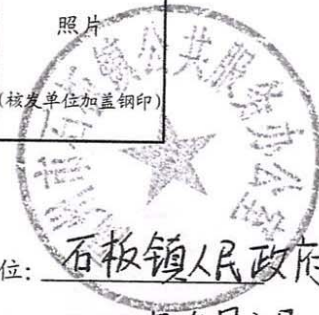 照片
(核发单位加盖钢印)
镇公共服务办公室
位: 石板镇人民政府